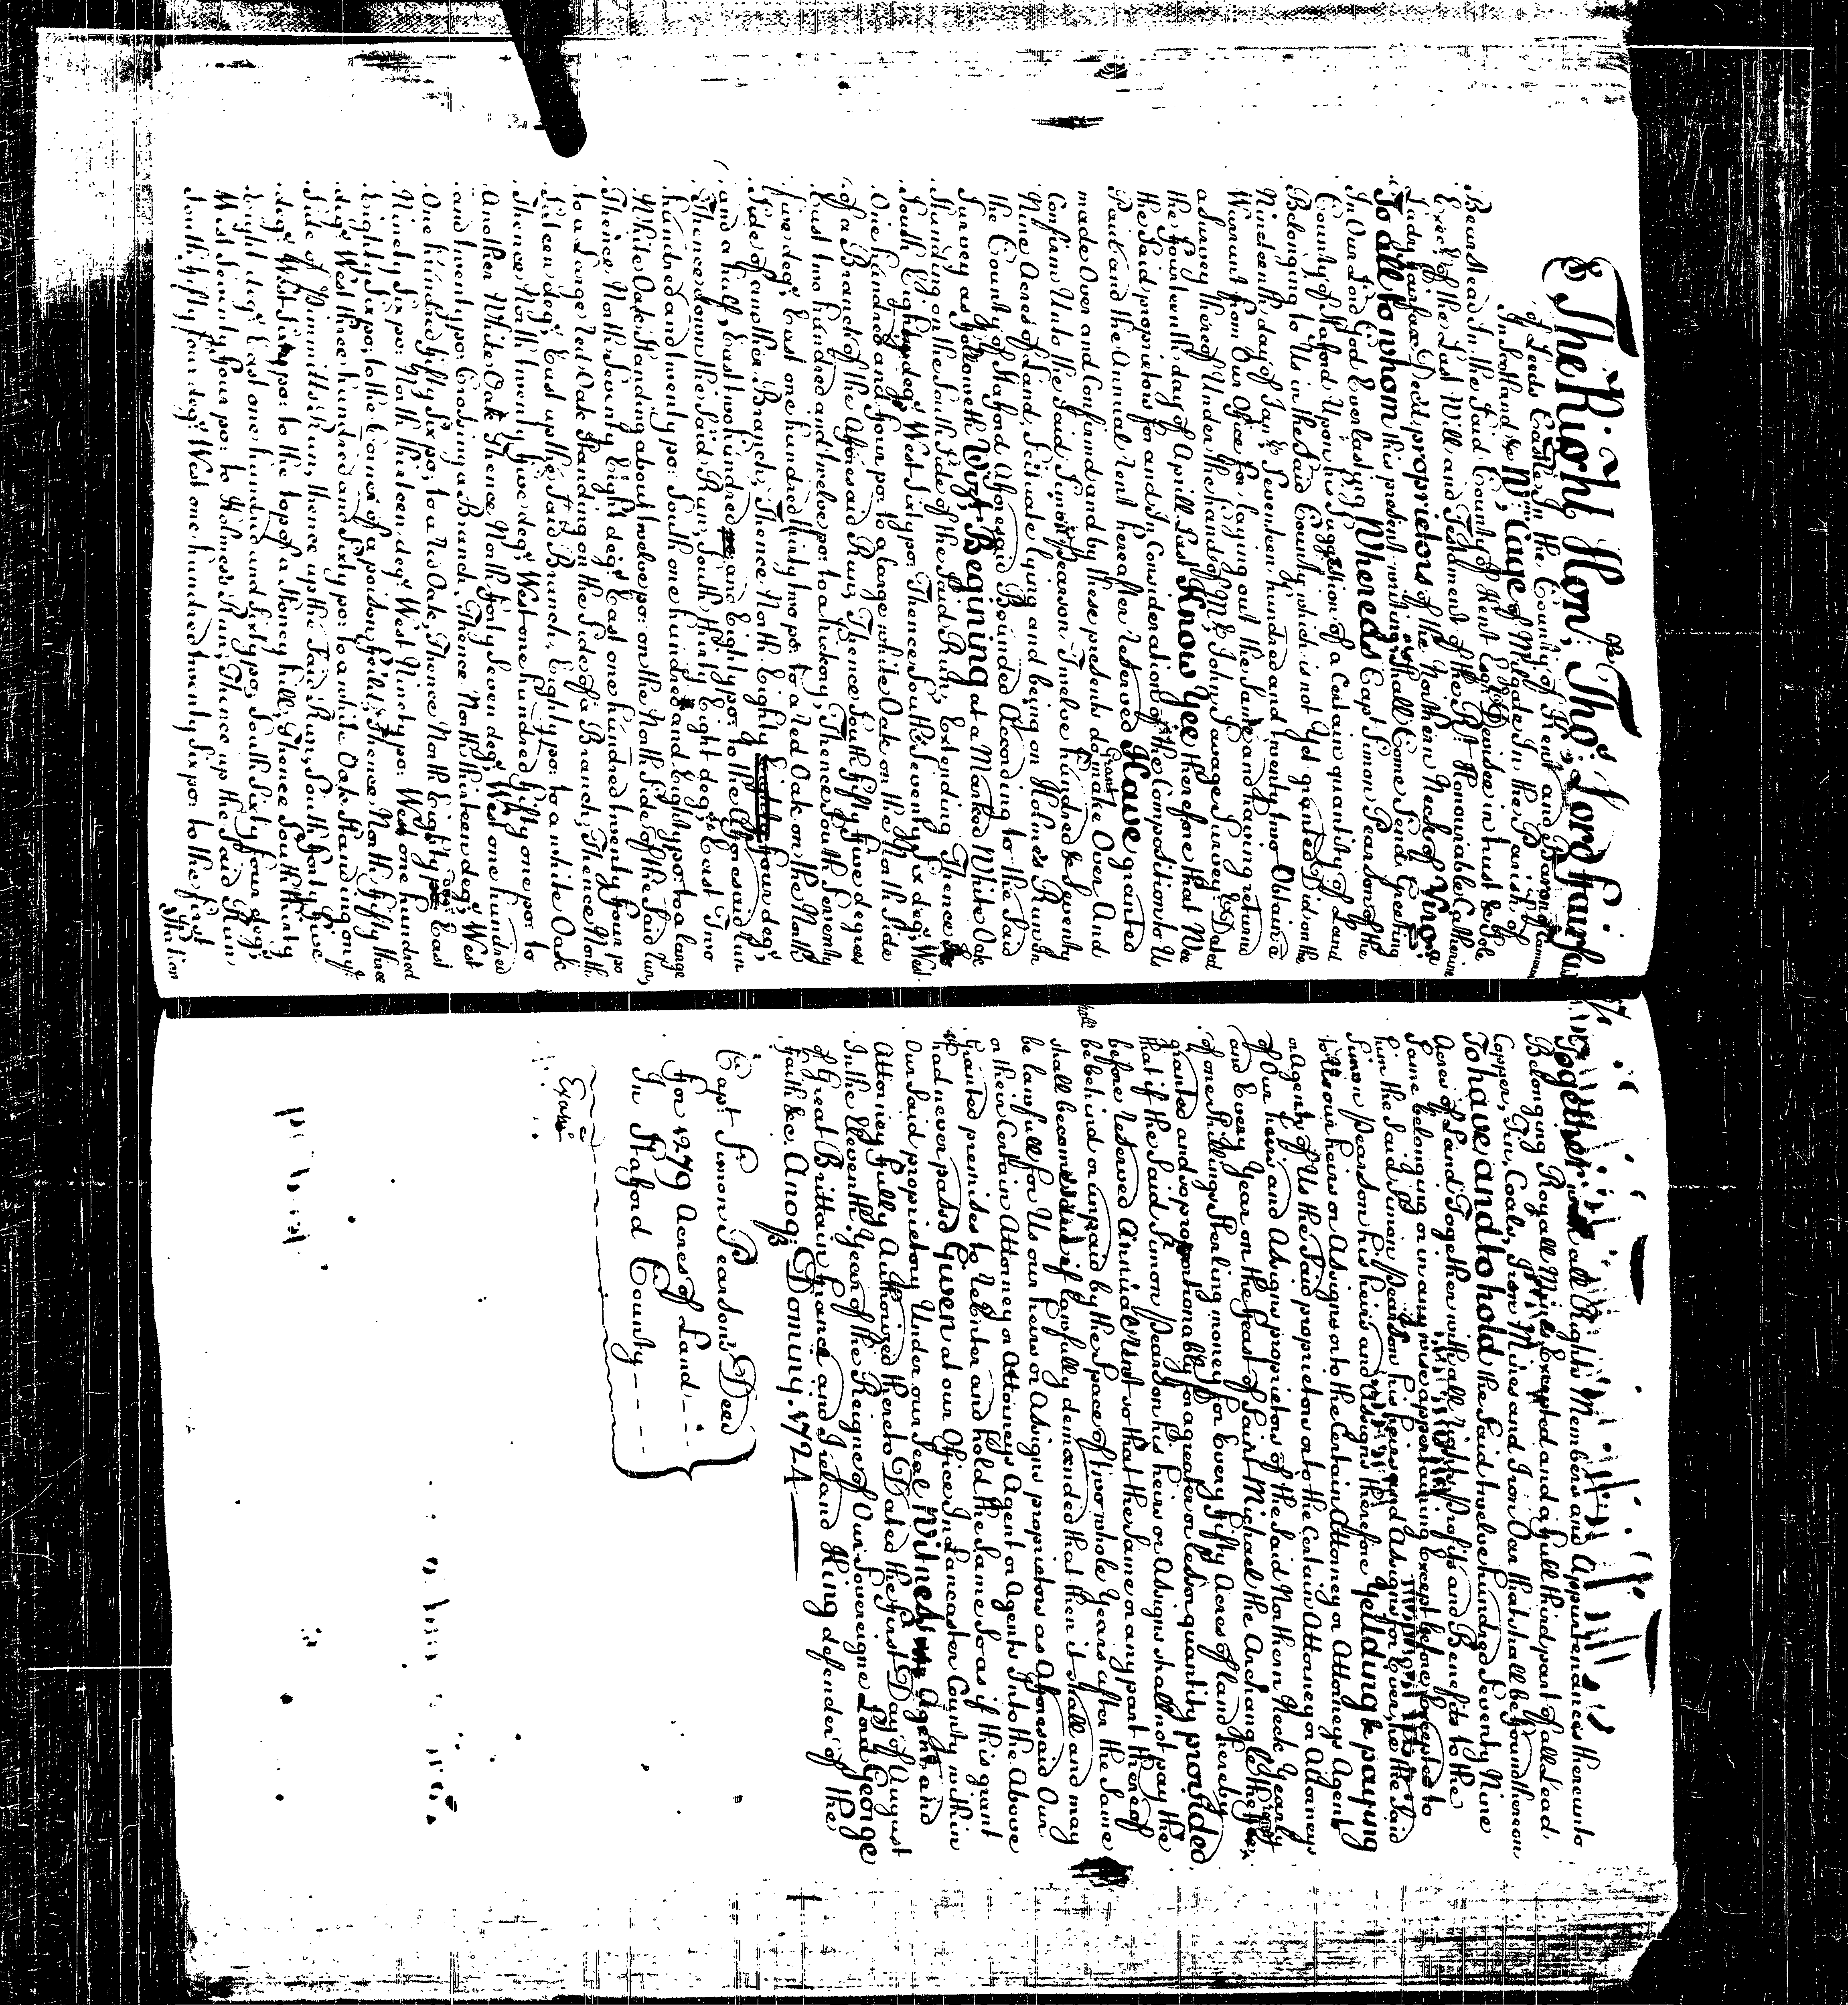 The Right Hon: the Tho.s Lord Fairfax
of Leeds Castle In the County of Kent and Baron of Cameron
In Scotland & Wm. Cage of Milgate In the Parish of
Bearstead In the Said County of Kent Esqr. Devisees in trust & Sole
Exec.rs of the Last Will and Testament of the Rt. Honourable Catherine
Lady Fairfax Dec'd proprietors of the Northern Neck of Virga.
To all to whom this present writing shall Come Send Greeting
In Our Lord God Everlasting Whereas Capt Simon Pearson of the
County of Stafford Upon his Suggestion of a Certain quantity of Land
Belonging to Us in the Said County which is not Yet granted Did on the
Nineteenth day of Jan.ry Seventeen hundred and twenty two Obtain a
Warrant from Our Office for laying out the Same and having returnd
a Survey thereof Under the hand of Mr. John Savage Survey.r Dated
the fourteenth day of Aprill Last Know Yee therefore that Wee
the Said proprietors for and In Consideration of the Composition to Us
Paid and the Annual Rent hereafter Reserved Have granted
made Over and Confirmd and by these presents do grant make Over And
Confirm Unto the Said Simon Pearson Twelve hundred & Seventy
Nine Acres of Land, Scituate lying and being on Holmes Run In
the County of Stafford Aforesaid Bounded According to the Said
Survey as followeth Viz.t Begining at a Marked White Oak
Standing on the South Side of the Said Run, Extending Thence
South Eighty deg.s West Sixty po: Thence South Seventy Six deg.s West
One hundred and four po: to a large white Oak on the North Side
of a Branch of the Aforesaid Run, Thence South fifty five degrees
East two hundred and twelve po: to a hickory, Thence South Seventy
five deg.s East one hundred thirty two po: to a Red Oak on the North
Side of another Branch, Thence North Eighty four deg.s
and a half, East two hundred and Eighty po: to the Aforesaid Run
Thence down the Said Run, South thirty Eight deg.s East Two
hundred and twenty po: South one hundred and Eighty po: to a large
White Oak Standing about twelve po: on the North Side of the Said Run,
Thence North Seventy Eight deg.s East one hundred twenty four po
to a Large Red Oak Standing on the Side of a Branch, Thence North
Sixteen deg.s East up the Said Branch, Eighty po: to a white Oak
Thence North twenty five deg.s West one hundred fifty one po: to
Another White Oak Thence North forty Seven deg.s West one hundred
and twenty po: Crossing a Branch, Thence North thirteen deg.s West
One hundred fifty Six po: to a Red Oak, Thence North Eighty deg.s East
Ninety Six po: North thirteen deg.s West Ninety po: West one hundred
Eighty Six po: to the Corner of a poison field, Thence North fifty three
deg.s West three hundred and Sixty po: to a white Oak Standing on ye
Side of Pimmitts Run, thence up the Said Run, South forty five
deg.s West Six po: to the top of a Stoney hill, Thence South thirty
Eight deg.s East one hundred and Sixty po, South Sixty four deg.s
West Seventy four po: to Holmes Run; Thence up the Said Run,
South fifty four deg.s West one hundred twenty Six po: to the first
Station
Together with all Rights Members and Appurtenances thereunto
Belonging Royall Mines Excepted and a full third part of all Lead,
Copper, Tin, Coals, Iron Mines and Iron Oar that shall be found thereon
To have and to hold the Said twelve hundred Seventy Nine
Acres of Land Together with all Rights Profits and Benefits to the
Same belonging or in any wise appertaining Except before Excepted to
him the Said Simon Pearson his heirs and Assigns for Ever, he the Said
Simon Pearson his heirs and Assigns therefore Yeilding & paying
to Us our heirs or Assigns or to the Certain Attorney or Attorneys Agent
or Agents of Us the Said proprietors or to the Certain Attorney or Attorneys
of Our heirs and Assigns proprietors of the Said Northern Neck Yearly
and Every Year on the feast of Saint Michael the Archangel the fee Rent
of one Shilling Sterling money for Every fifty Acres of Land hereby
granted and so proportionably for a greater or lesser quantity provided
that if the Said Simon Pearson his heirs or Assigns shall not pay the
before Reserved Annual Rent so that the Same or any part thereof
shall be behind or unpaid by the Space of two whole Years after the Same
shall become due if lawfully demanded that then it shall and may
be lawfull for Us our heirs or Assigns proprietors as Aforesaid Our
or their Certain Attorney or Attorneys Agent or Agents Into the Above
granted premises to Reenter and hold the Same So as if this grant
had never passd Given at our Office In Lancaster County within
Our Said proprietory Under our Seal Witness Agent and
Attorney fully Authorized thereto Dated the first Day of August
In the Eleventh Year of the Reigne of Our Sovereigne Lord George
of Great Brittain france and Ireland King defender of the
faith &c. Anoq; Dominy. 1724
Capt. Simon Pearsons Deed
for 1279 Acres of Land
In Stafford County
Exam: